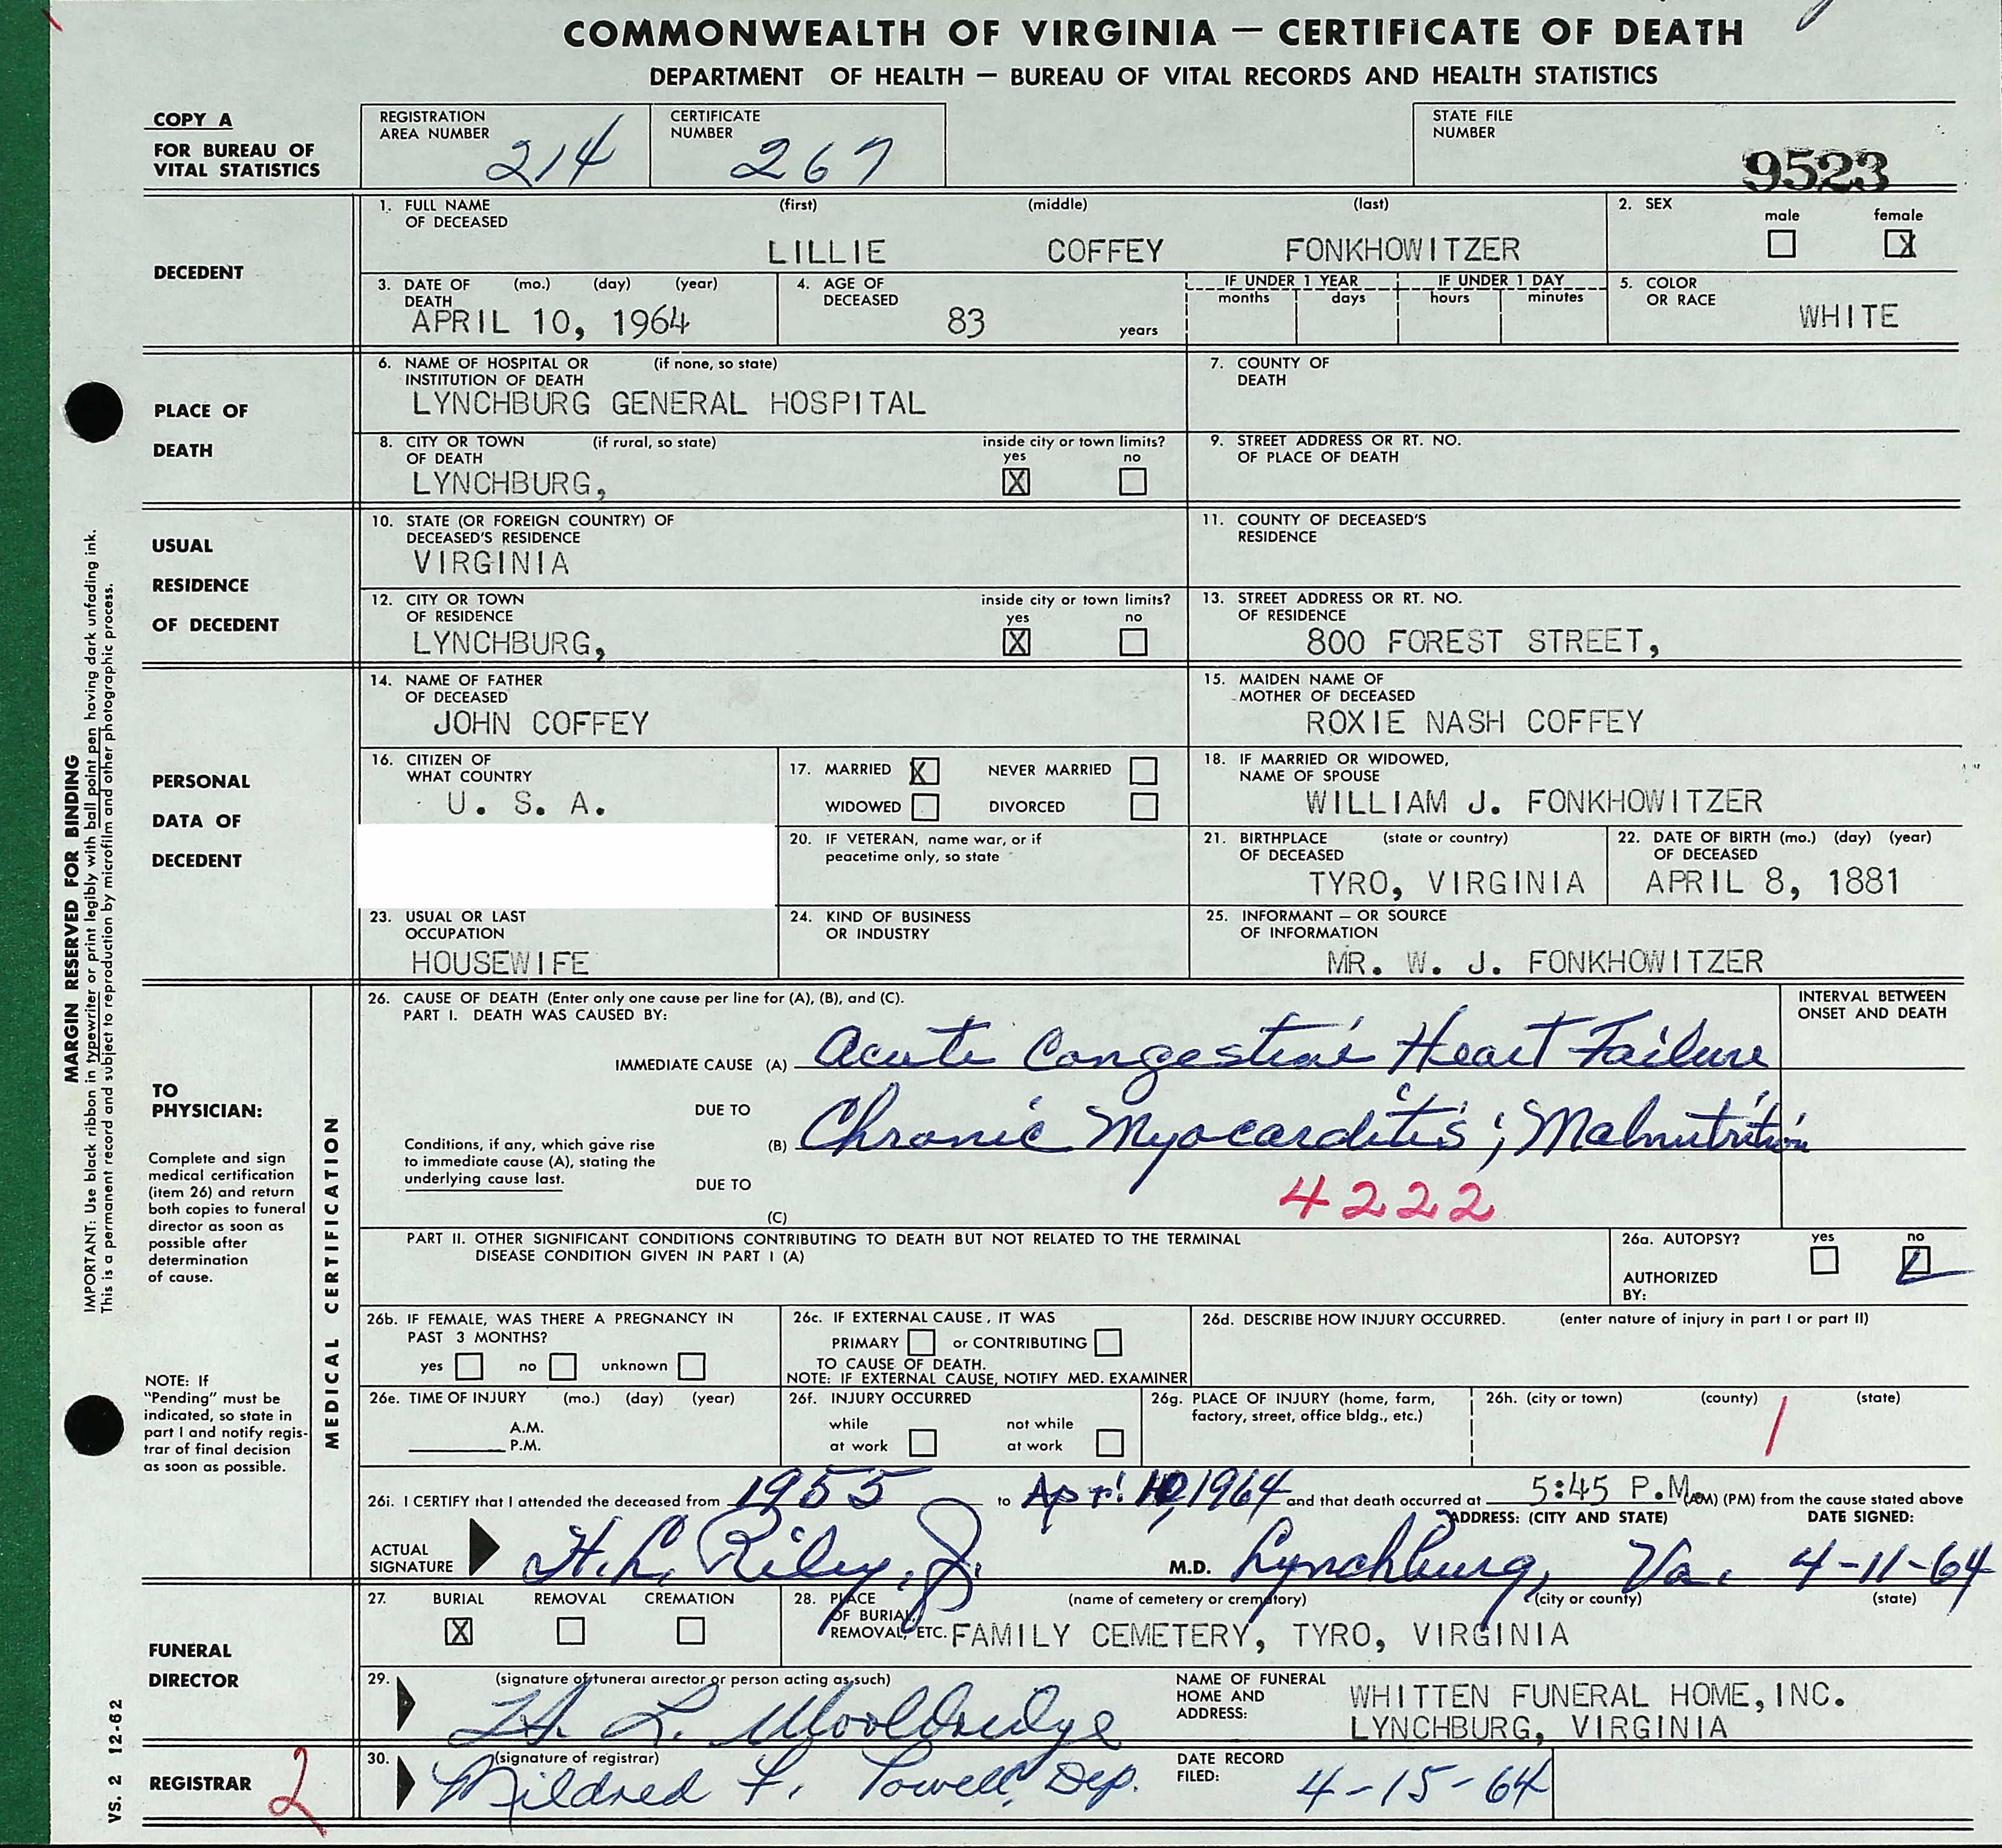 COMMONWEALTH OF VIRGINIA — CERTIFICATE OF DEATH
DEPARTMENT OF HEALTH — BUREAU OF VITAL RECORDS AND HEALTH STATISTICS
COPY A
FOR BUREAU OF
VITAL STATISTICS
REGISTRATION
AREA NUMBER 214
CERTIFICATE
NUMBER 267
STATE FILE
NUMBER
9523
DECEDENT
1. FULL NAME (first) (middle) (last)
OF DECEASED
LILLIE COFFEY FONKHOWITZER
2. SEX
male female
X
3. DATE OF (mo.) (day) (year)
DEATH
APRIL 10, 1964
4. AGE OF
DECEASED
83 years
IF UNDER 1 YEAR IF UNDER 1 DAY
months days hours minutes
5. COLOR
OR RACE
WHITE
PLACE OF
DEATH
6. NAME OF HOSPITAL OR (if none, so state)
INSTITUTION OF DEATH
LYNCHBURG GENERAL HOSPITAL
7. COUNTY OF
DEATH
8. CITY OR TOWN (if rural, so state) inside city or town limits?
OF DEATH yes no
LYNCHBURG, X
9. STREET ADDRESS OR RT. NO.
OF PLACE OF DEATH
USUAL
RESIDENCE
OF DECEDENT
10. STATE (OR FOREIGN COUNTRY) OF
DECEASED'S RESIDENCE
VIRGINIA
11. COUNTY OF DECEASED'S
RESIDENCE
12. CITY OR TOWN inside city or town limits?
OF RESIDENCE yes no
LYNCHBURG, X
13. STREET ADDRESS OR RT. NO.
OF RESIDENCE
800 FOREST STREET,
PERSONAL
DATA OF
DECEDENT
14. NAME OF FATHER
OF DECEASED
JOHN COFFEY
15. MAIDEN NAME OF
MOTHER OF DECEASED
ROXIE NASH COFFEY
16. CITIZEN OF
WHAT COUNTRY
U. S. A.
17. MARRIED X NEVER MARRIED
WIDOWED DIVORCED
18. IF MARRIED OR WIDOWED,
NAME OF SPOUSE
WILLIAM J. FONKHOWITZER
20. IF VETERAN, name war, or if
peacetime only, so state
21. BIRTHPLACE (state or country)
OF DECEASED
TYRO, VIRGINIA
22. DATE OF BIRTH (mo.) (day) (year)
OF DECEASED
APRIL 8, 1881
23. USUAL OR LAST
OCCUPATION
HOUSEWIFE
24. KIND OF BUSINESS
OR INDUSTRY
25. INFORMANT — OR SOURCE
OF INFORMATION
MR. W. J. FONKHOWITZER
MARGIN RESERVED FOR BINDING
IMPORTANT: Use black ribbon in typewriter or print legibly with ball point pen having dark unfading ink.
This is a permanent record and subject to reproduction by microfilm and other photographic process.
TO
PHYSICIAN:
Complete and sign
medical certification
(item 26) and return
both copies to funeral
director as soon as
possible after
determination
of cause.
NOTE: If
"Pending" must be
indicated, so state in
part I and notify regis-
trar of final decision
as soon as possible.
MEDICAL CERTIFICATION
26. CAUSE OF DEATH (Enter only one cause per line for (A), (B), and (C).
PART I. DEATH WAS CAUSED BY:
INTERVAL BETWEEN
ONSET AND DEATH
IMMEDIATE CAUSE (A) Acute Congestive Heart Failure
DUE TO
Conditions, if any, which gave rise
to immediate cause (A), stating the
underlying cause last.
(B) Chronic Myocarditis; Malnutrition
DUE TO
4222
(C)
PART II. OTHER SIGNIFICANT CONDITIONS CONTRIBUTING TO DEATH BUT NOT RELATED TO THE TERMINAL
DISEASE CONDITION GIVEN IN PART I (A)
26a. AUTOPSY? yes no
AUTHORIZED
BY:
26b. IF FEMALE, WAS THERE A PREGNANCY IN
PAST 3 MONTHS?
yes no unknown
26c. IF EXTERNAL CAUSE, IT WAS
PRIMARY or CONTRIBUTING
TO CAUSE OF DEATH.
NOTE: IF EXTERNAL CAUSE, NOTIFY MED. EXAMINER
26d. DESCRIBE HOW INJURY OCCURRED. (enter nature of injury in part I or part II)
26e. TIME OF INJURY (mo.) (day) (year)
A.M.
P.M.
26f. INJURY OCCURRED
while not while
at work at work
26g. PLACE OF INJURY (home, farm,
factory, street, office bldg., etc.)
26h. (city or town) (county) (state)
1
26i. I CERTIFY that I attended the deceased from 1955 to April 10, 1964 and that death occurred at 5:45 P.M. (AM) (PM) from the cause stated above
ADDRESS: (CITY AND STATE) DATE SIGNED:
ACTUAL
SIGNATURE H. L. Riley, Jr. M.D. Lynchburg, Va. 4-11-64
FUNERAL
DIRECTOR
27. BURIAL REMOVAL CREMATION
X
28. PLACE (name of cemetery or crematory) (city or county) (state)
OF BURIAL,
REMOVAL, ETC. FAMILY CEMETERY, TYRO, VIRGINIA
29. (signature of funeral director or person acting as such)
L. Wooldridge
NAME OF FUNERAL
HOME AND
ADDRESS:
WHITTEN FUNERAL HOME, INC.
LYNCHBURG, VIRGINIA
REGISTRAR 2
30. (signature of registrar)
Mildred F. Powell, Dep.
DATE RECORD
FILED: 4-15-64
VS. 2 12-62